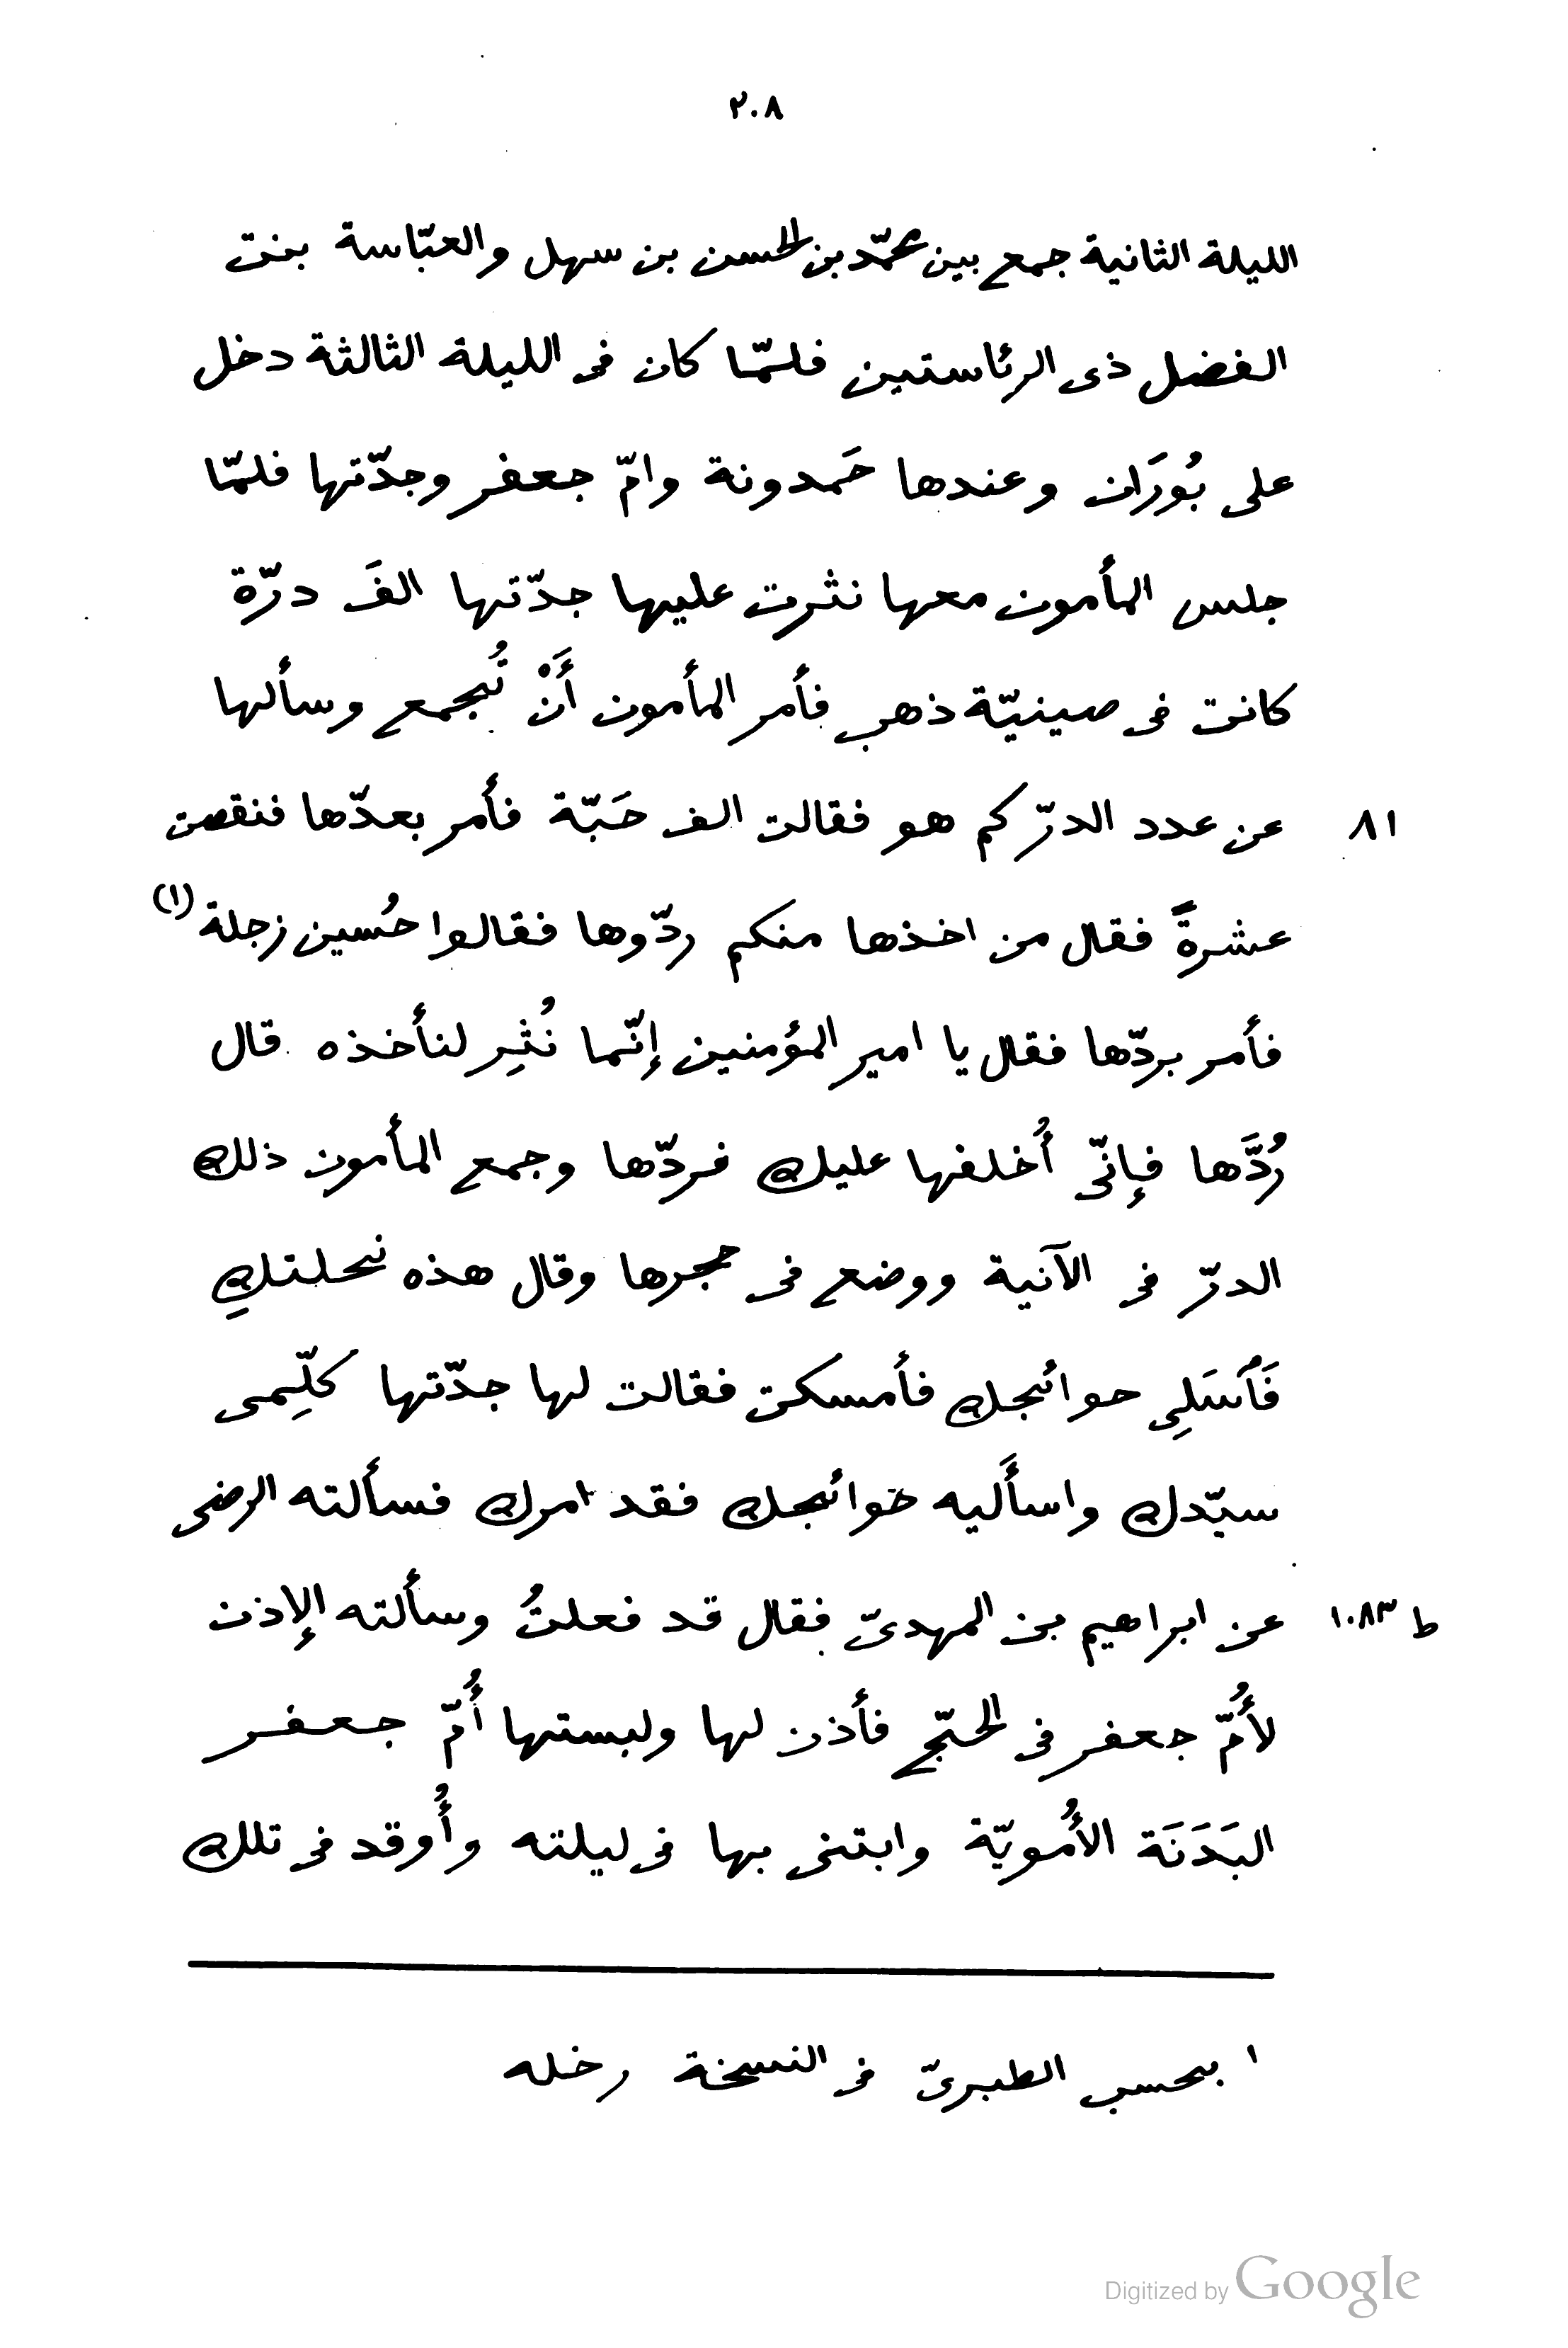 ٢٠٨
الليلة الثانية جمع بين محمّد بن الحسن بن سهل والعبّاسة بنت
الفضل ذى الرئاستين فلمّا كان فى الليلة الثالثة دخل
على بُورَان وعندها حَمدونة وامّ جعفر وجدّتها فلمّا
جلس المأمون معها نثرت عليها جدّتها الفَ درّة
كانت فى صينيّة ذهب فأمر المأمون أَنْ تُجمع وسألها
٨١ عن عدد الدرّ كم هو فقالت الف حَبّة فأمر بعدّها فنقصت
عشرةً فقال من اخذها منكم ردّوها فقالوا حُسين زجلة (١)
فأمر بردّها فقال يا امير المؤمنين إنّما نُثِر لنأخذه قال
رُدَّها فإنّى أُخلفها عليك فردّها وجمع المأمون ذلك
الدرّ فى الآنية ووضع فى حجرها وقال هذه نحلتكِ
فَٱسَلِى حوائجك فأمسكت فقالت لها جدّتها كلِّمى
سيّدك واسأَليه حَوائجك فقد امرك فسألته الرضى
ط ١٠٨٣ عن ابراهيم بن المهدىّ فقال قد فعلتُ وسألته الإذن
لأُمّ جعفر فى الحجّ فأذن لها ولبستها أُمّ جعفر
البَدَنَة الأُمويّة وابتنى بها فى ليلته وأُوقد فى تلك
١ بحسب الطبرىّ فى النسخة رخله
Digitized by Google